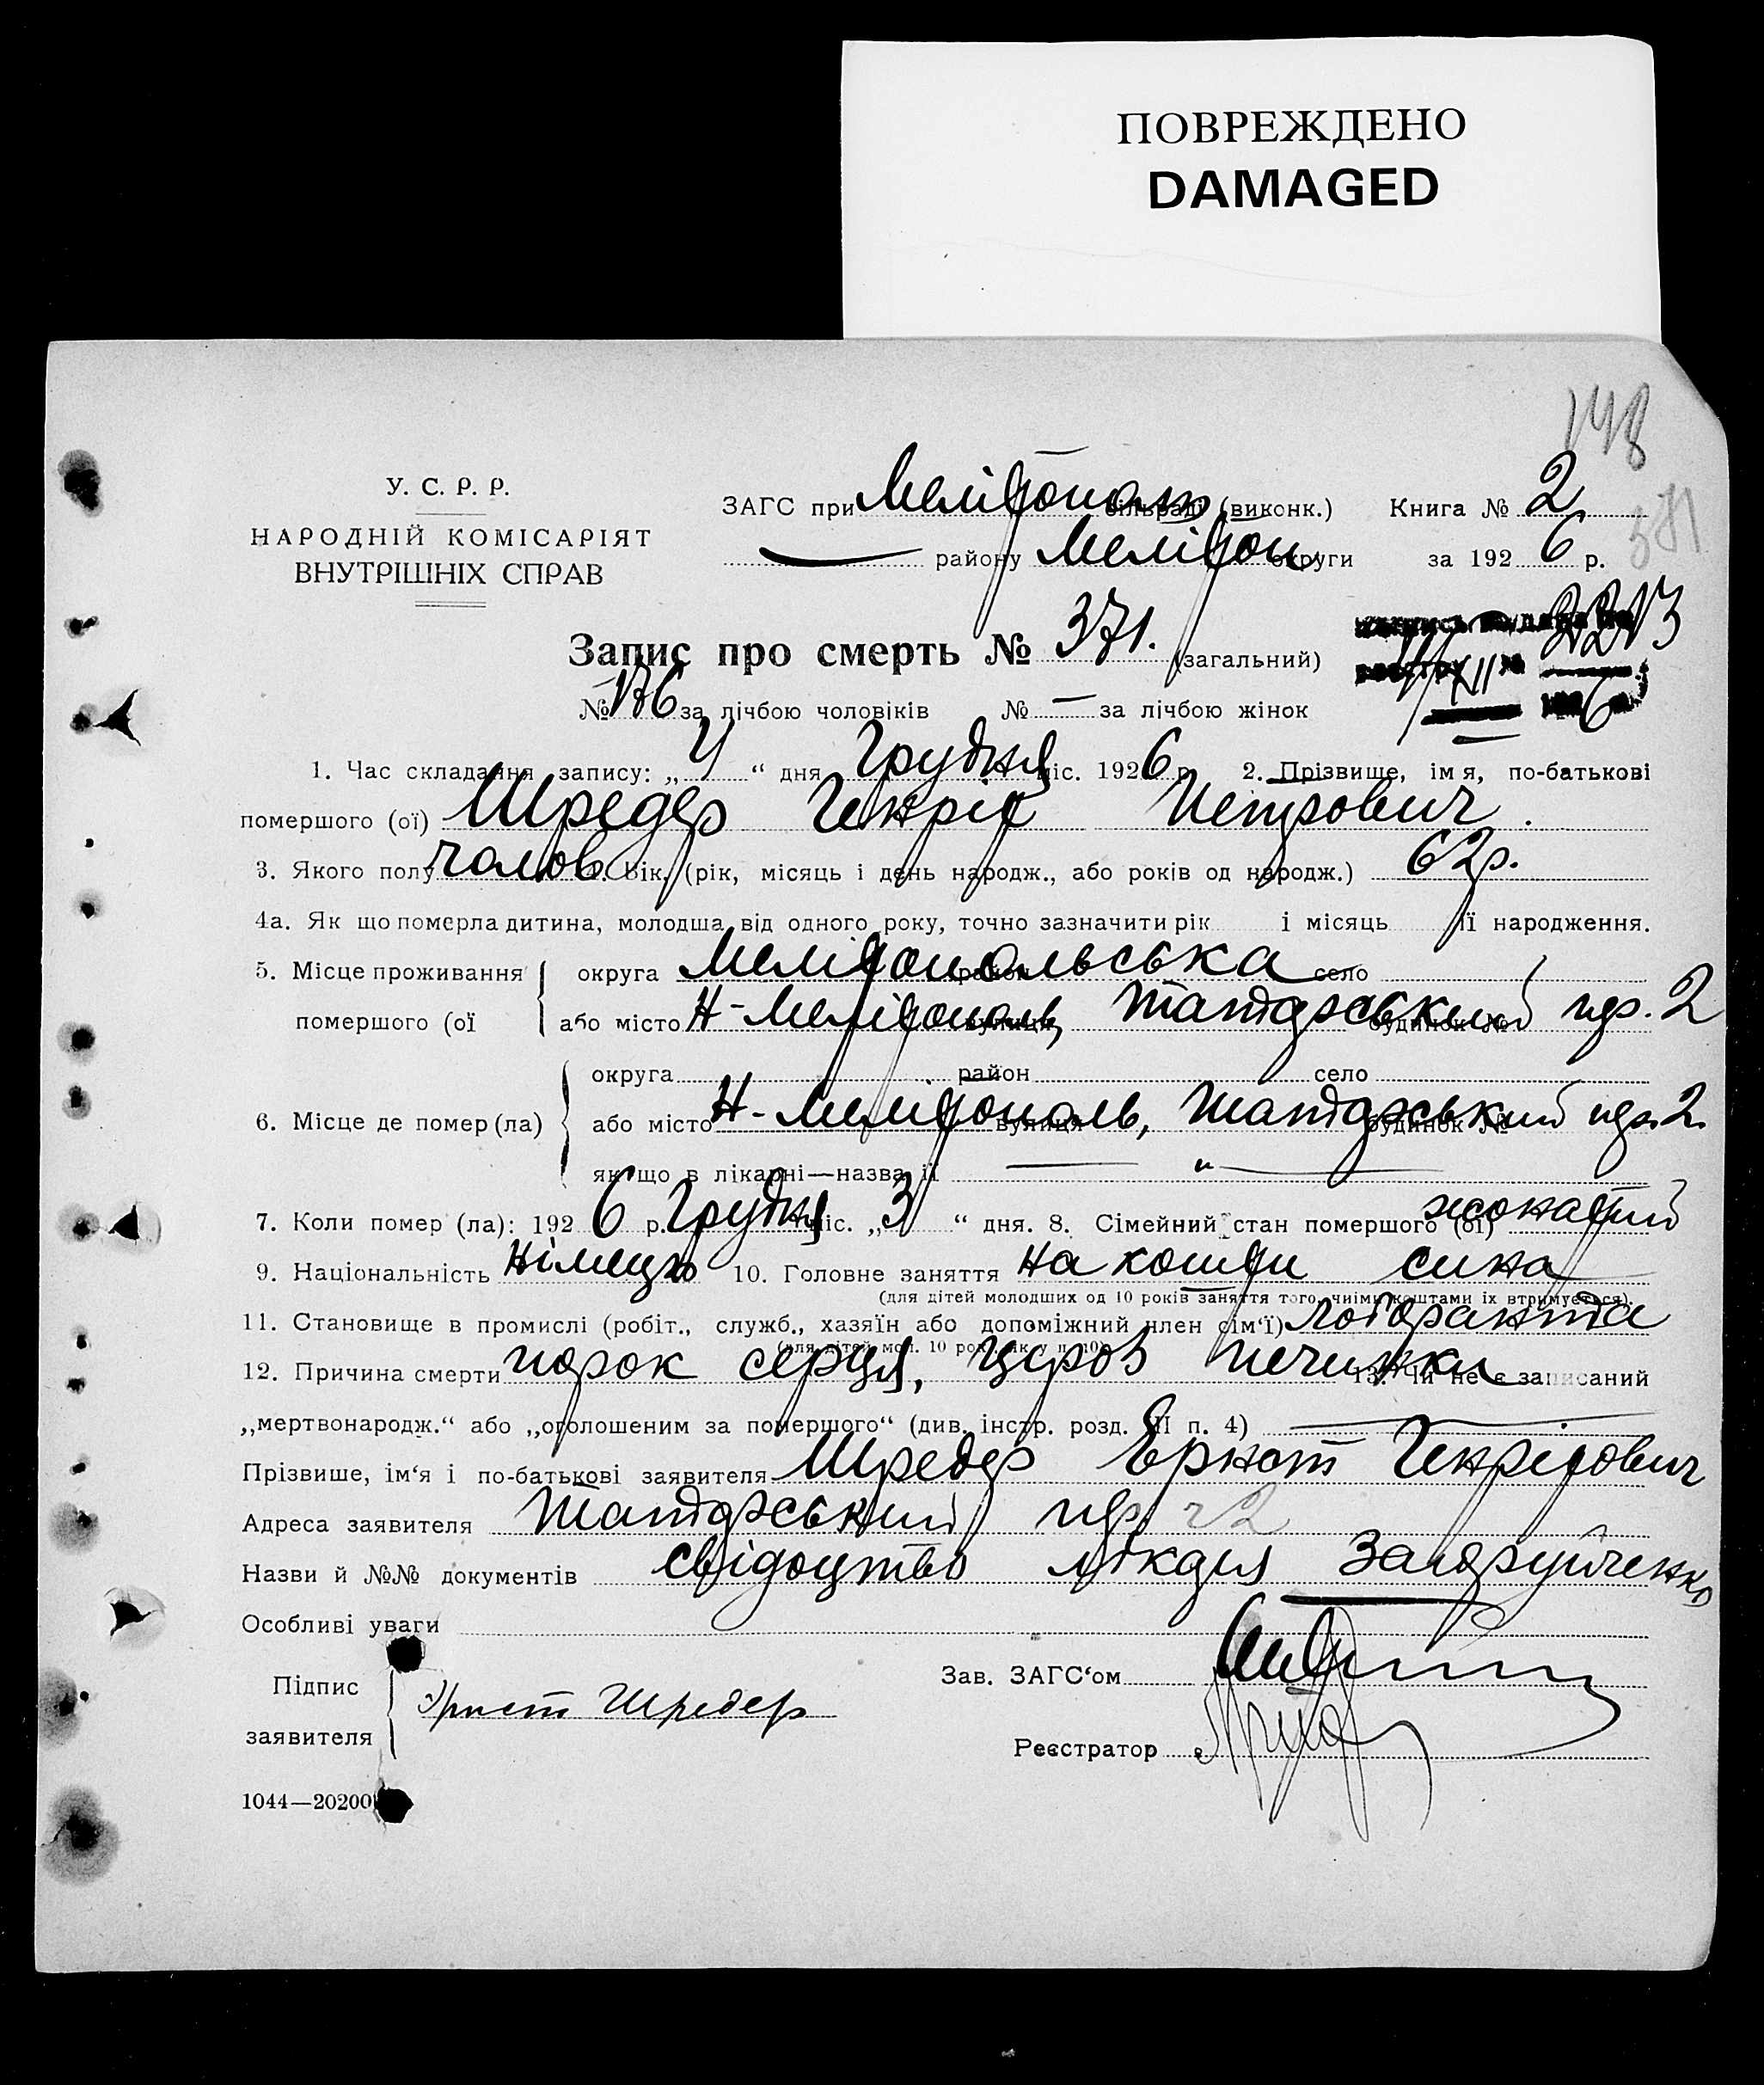 ПОВРЕЖДЕНО
DAMAGED
148
371
У. С. Р. Р.
НАРОДНІЙ КОМІСАРІЯТ
ВНУТРІШНІХ СПРАВ
ЗАГС при Мелітопол. сільраді (виконк.) Книга № 2
— району Мелітоп. округи за 1926 р.
Запис про смерть № 371. (загальний)
2213
4/XII 6
№ 176 за лічбою чоловіків № — за лічбою жінок
1. Час складання запису: „4“ дня Грудня міс. 1926 р. 2. Прізвище, імя, по-батькові
помершого (ої) Шредер Генріх Петрович.
3. Якого полу чолов. 4. Вік. (рік, місяць і день народж., або років од народж.) 62 р.
4а. Як що померла дитина, молодша від одного року, точно зазначити рік і місяць її народження.
5. Місце проживання помершого (ої
округа Мелітопольська район село
або місто Н-Мелітополь, вулиця Татарський будинок № пер. 2
6. Місце де помер (ла)
округа район село
або місто Н-Мелітополь, вулиця Татарський будинок № пер. 2
якщо в лікарні—назва її — „ —
7. Коли помер (ла): 1926 р. Грудня міс. „3“ дня. 8. Сімейний стан помершого (ої) жонатий
9. Національність німець 10. Головне заняття на кошти сина
(для дітей молодших од 10 років заняття того, чиїми коштами їх втримується).
11. Становище в промислі (робіт., служб., хазяїн або допоміжний член сім'ї) лоборанта
(для дітей мол. 10 рок. як у п. 10)
12. Причина смерти порок серця, ціроз печинки 13. Чи не є записаний
„мертвонародж.“ або „оголошеним за помершого“ (див. інстр. розд. III п. 4) —
Прізвище, ім'я і по-батькові заявителя Шредер Ернст Генріхович
Адреса заявителя Татарський пер. 2
Назви й №№ документів свідоцтво лікаря Загоруйченко
Особливі уваги
Підпис заявителя Эрнст Шредер
Зав. ЗАГС'ом
Реєстратор
1044—20200